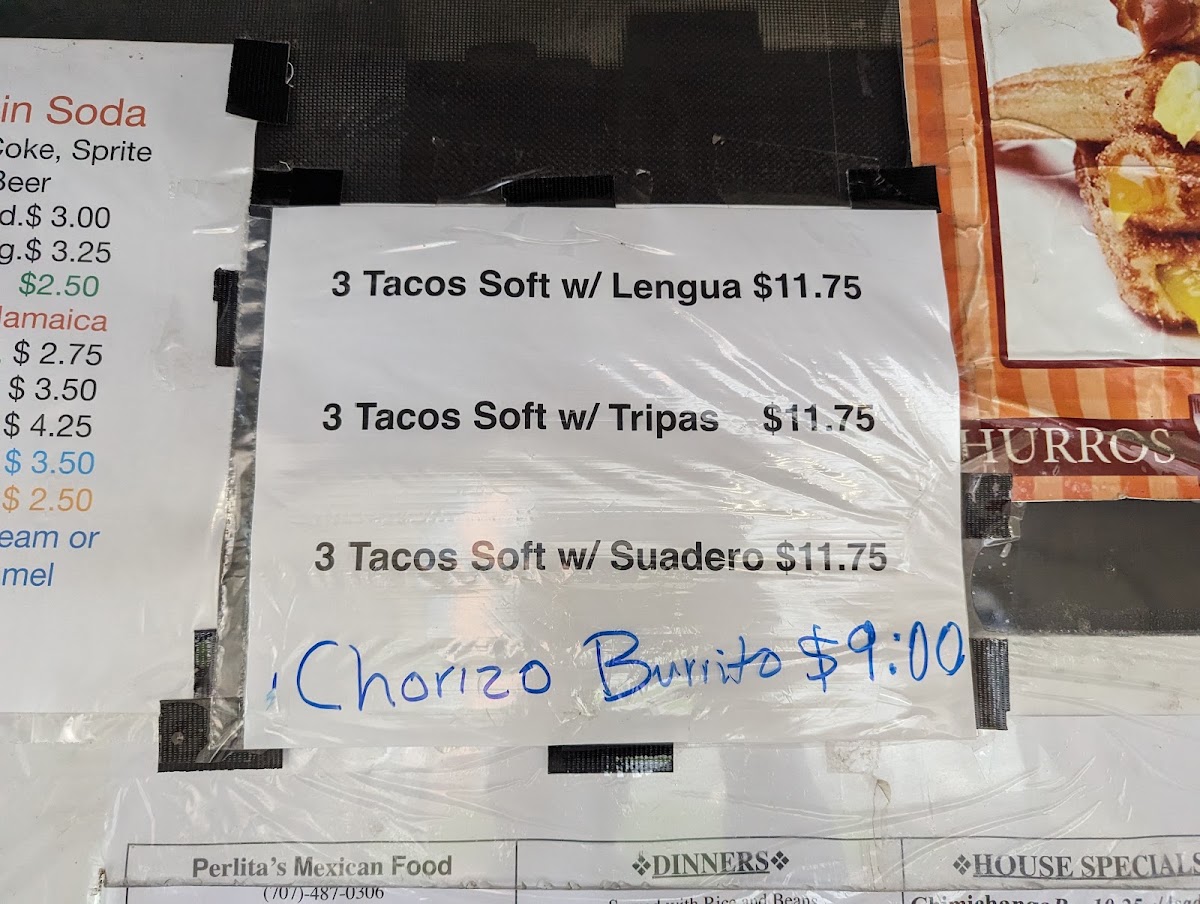 in Soda
Coke, Sprite
Beer
d.$ 3.00
g.$ 3.25
$2.50
Jamaica
$ 2.75
$ 3.50
$ 4.25
$ 3.50
$ 2.50
eam or
mel
3 Tacos Soft w/ Lengua $11.75
3 Tacos Soft w/ Tripas $11.75
3 Tacos Soft w/ Suadero $11.75
Chorizo Burrito $9:00
HURROS
Perlita's Mexican Food
(707)-487-0306
❖DINNERS❖
Served with Rice and Beans
❖HOUSE SPECIALS
Chimichanga